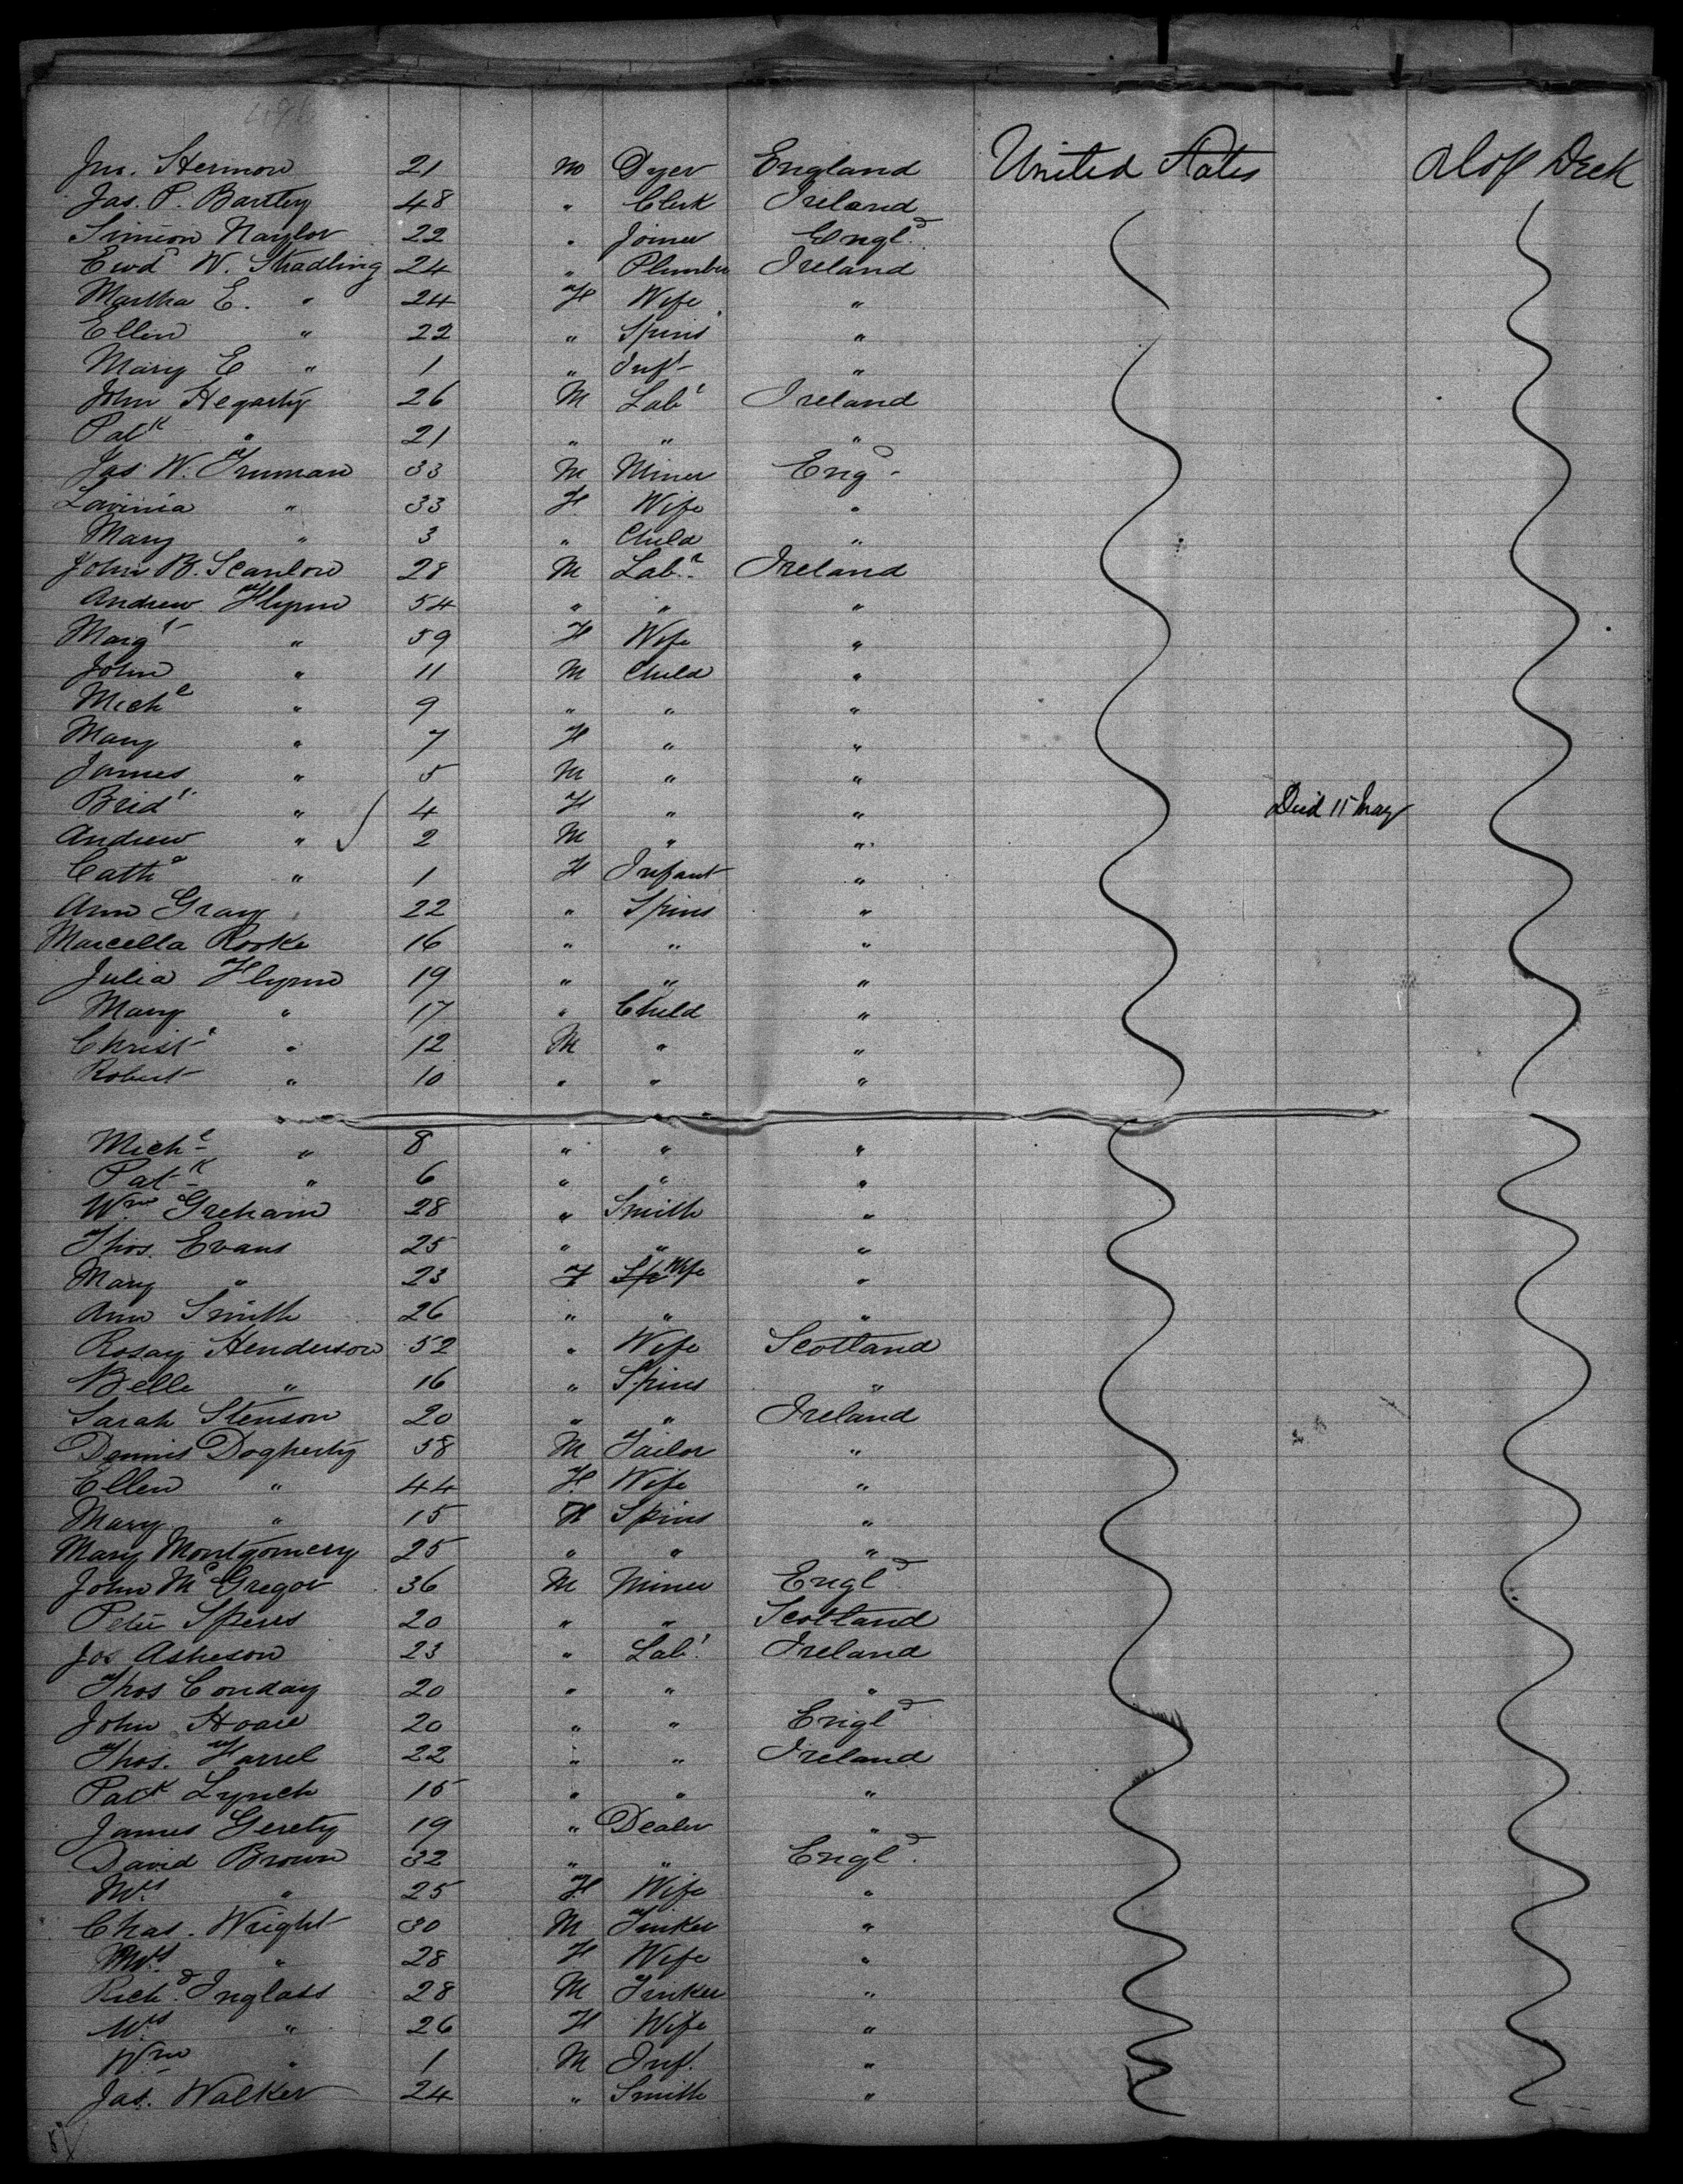 Jno. Hermon 21 M Dyer England United States Aloft Deck
Jas. P. Bartley 48 " Clerk Ireland
Simeon Naylor 22 " Joiner Engld
Ewd W. Stradling 24 " Plumber Ireland
Martha E. " 24 F Wife "
Ellen " 22 " Spins "
Mary E " 1 " Inft "
John Hegarty 26 M Labr Ireland
Patk " 21 " " "
Jas W. Truman 33 M Miner Engd
Lavinia " 33 F Wife "
Mary " 3 " Child "
John B. Scanlon 28 M Labr Ireland
Andrew Flynn 54 " " "
Margt " 59 F Wife "
John " 11 M Child "
Michl " 9 " " "
Mary " 7 F " "
James " 5 M " "
Bridt " 4 F " " Died 15 May
Andrew " 2 M " "
Cathe " 1 F Infant "
Ann Gray 22 " Spins "
Marcella Rooke 16 " " "
Julia Flynn 19 " " "
Mary " 17 " Child "
Christr " 12 M " "
Robert " 10 " " "
Michl " 8 " " "
Patk " 6 " " "
Wm Greham 28 " Smith "
Thos. Evans 25 " " "
Mary " 23 F Sp Wife "
Ann Smith 26 " " "
Rosay Henderson 52 " Wife Scotland
Belle " 16 " Spins "
Sarah Stenson 20 " " Ireland
Dennis Dogherty 58 M Tailor "
Ellen " 44 F Wife "
Mary " 15 F Spins "
Mary Montgomery 25 " " "
John McGregor 36 M Miner Engld
Peter Speirs 20 " " Scotland
Jos Asheson 23 " Labr Ireland
Thos Conday 20 " " "
John Hoare 20 " " Engld
Thos. Farrel 22 " " Ireland
Patk Lynch 15 " " "
James Gerety 19 " Dealer "
David Brown 32 " " Engld.
Mrs " 25 F Wife "
Chas. Wright 30 M Tinker "
Mrs " 28 F Wife "
Richd Inglass 28 M Tinker "
Mrs " 26 F Wife "
Wm " 1 M Inf. "
Jas. Walker 24 " Smith "